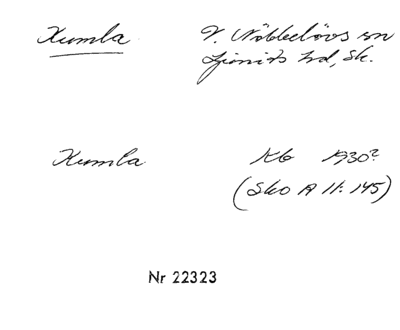 Kumla V. Nöbbelövs sn
Ljunits hd, Sk.
Kumla Kb 1930?
(SkO A 11:145)
Nr 22323